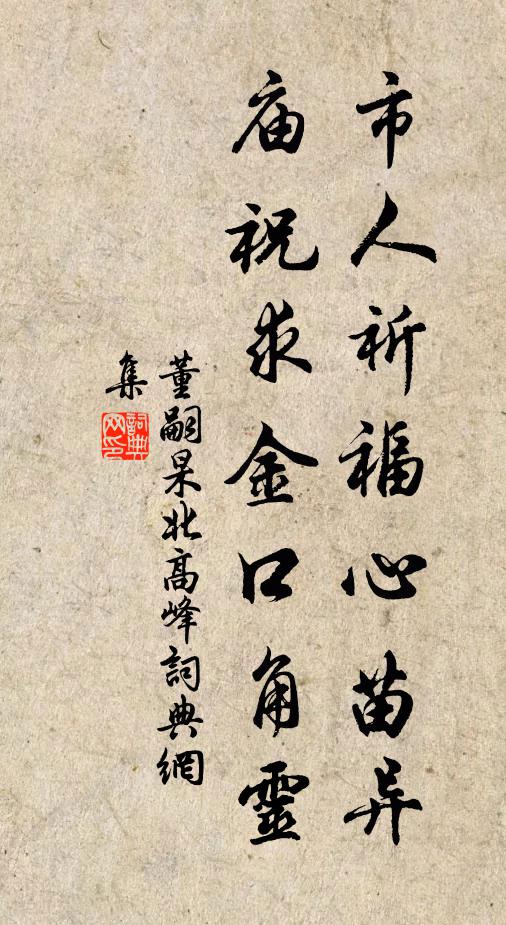 市人祈福心苗异
庙祝求金口角靈
董嗣杲北高峰詞典網
集
詞典
网印